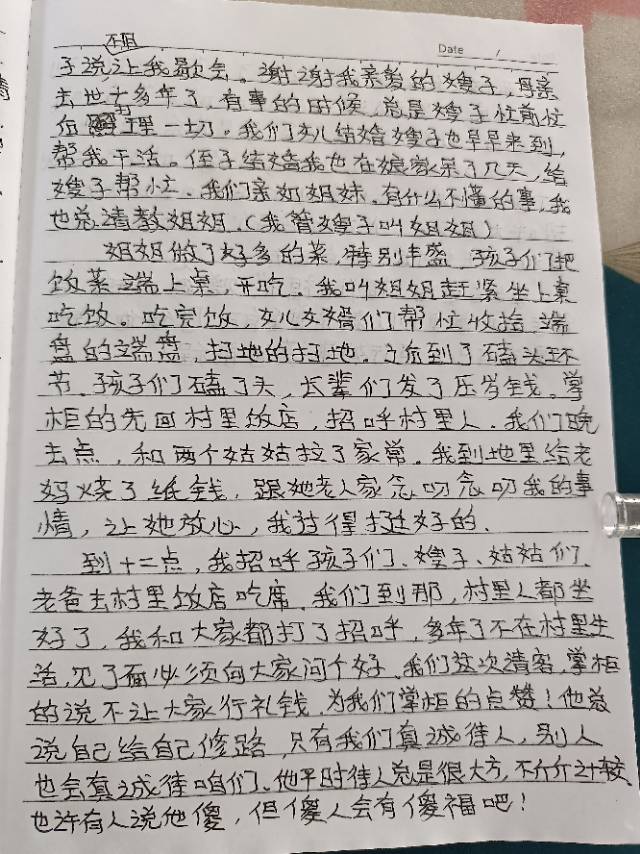 Date /
子说让我歇会。谢谢我亲爱的嫂子,母亲
去世十多年了,有事的时候,总是嫂子忙前忙
后 理一切。我们女儿结婚嫂子也早早来到,
帮我干活。侄子结婚我也在娘家呆了几天,给
嫂子帮忙。我们亲如姐妹。有什么不懂的事,我
也总请教姐姐。(我管嫂子叫姐姐)
姐姐做了好多的菜,特别丰盛。孩子们把
饭菜端上桌,开吃。我叫姐姐赶紧坐上桌
吃饭。吃完饭,女儿女婿们帮忙收拾,端
盘的端盘,扫地的扫地。之后到了磕头环
节。孩子们磕了头,长辈们发了压岁钱。掌
柜的先回村里饭店,招呼村里人。我们晚
去点,和两个姑姑拉了家常。我到地里给老
妈烧了纸钱,跟她老人家念叨念叨我的事
情,让她放心,我过得挺好的。
到十二点,我招呼孩子们、嫂子、姑姑们、
老爸去村里饭店吃席。我们到那,村里人都坐
好了,我和大家都打了招呼,多年了不在村里生
活,见了面必须向大家问个好。我们这次请客,掌柜
的说不让大家行礼钱,为我们掌柜的点赞!他总
说自己给自己修路,只有我们真诚待人,别人
也会真诚待咱们。他平时待人总是很大方,不斤斤计较。
也许有人说他傻,但傻人会有傻福吧!